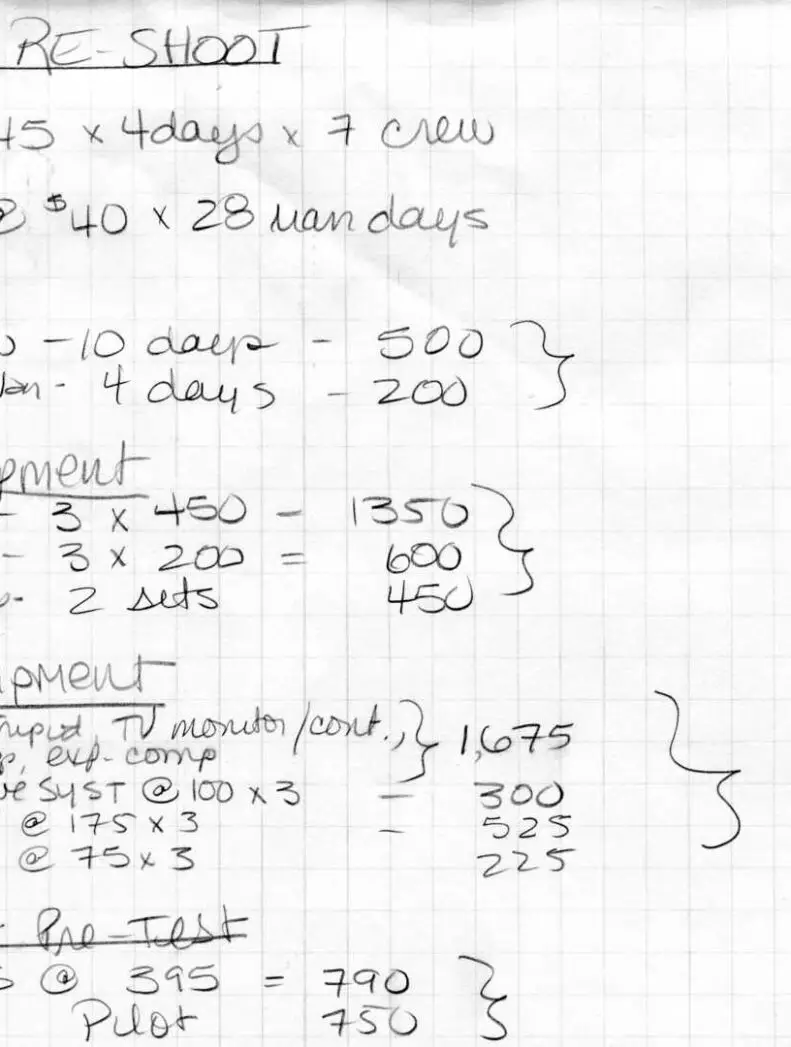 RE-SHOOT
45 x 4 days x 7 crew
@ $40 x 28 man days
- 10 days - 500
- 4 days - 200
- 3 x 450 - 1350
- 3 x 200 = 600
- 2 sets 450
TV monitor/cont., 1,675
exp-comp
SYST @ 100 x 3 - 300
@ 175 x 3 - 525
@ 75 x 3 225
Pre-Test
@ 395 = 790
Pilot 750